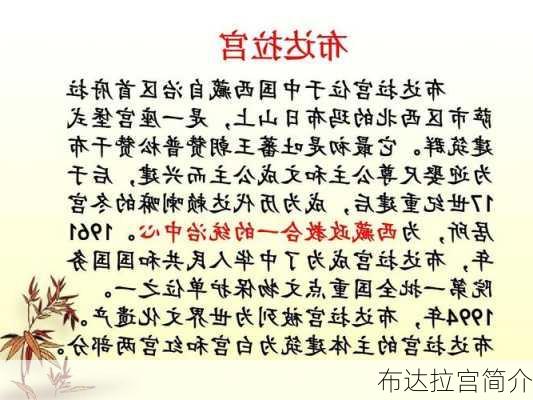 布达拉宫
布达拉宫位于中国西藏自治区首府拉
萨市区西北的玛布日山上，是一座宫堡式
建筑群。它最初是吐蕃王朝赞普松赞干布
为迎娶尺尊公主和文成公主而兴建，后于
17世纪重建后，成为历代达赖喇嘛的冬宫
居所，为西藏政教合一的统治中心。1961
年，布达拉宫成为了中华人民共和国国务
院第一批全国重点文物保护单位之一。
1994年，布达拉宫被列为世界文化遗产。
布达拉宫的主体建筑为白宫和红宫两部分。
布达拉宫简介